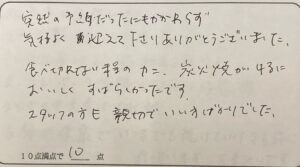 突然の予約だったにもかかわらず
気持よく 迎えて下さりありがとうございました。
食べ切れない程のカニ、炭火焼が特に
おいしく すばらしかったです。
スタッフの方も 親切で いいすばかりでした。
10点満点で 10 点